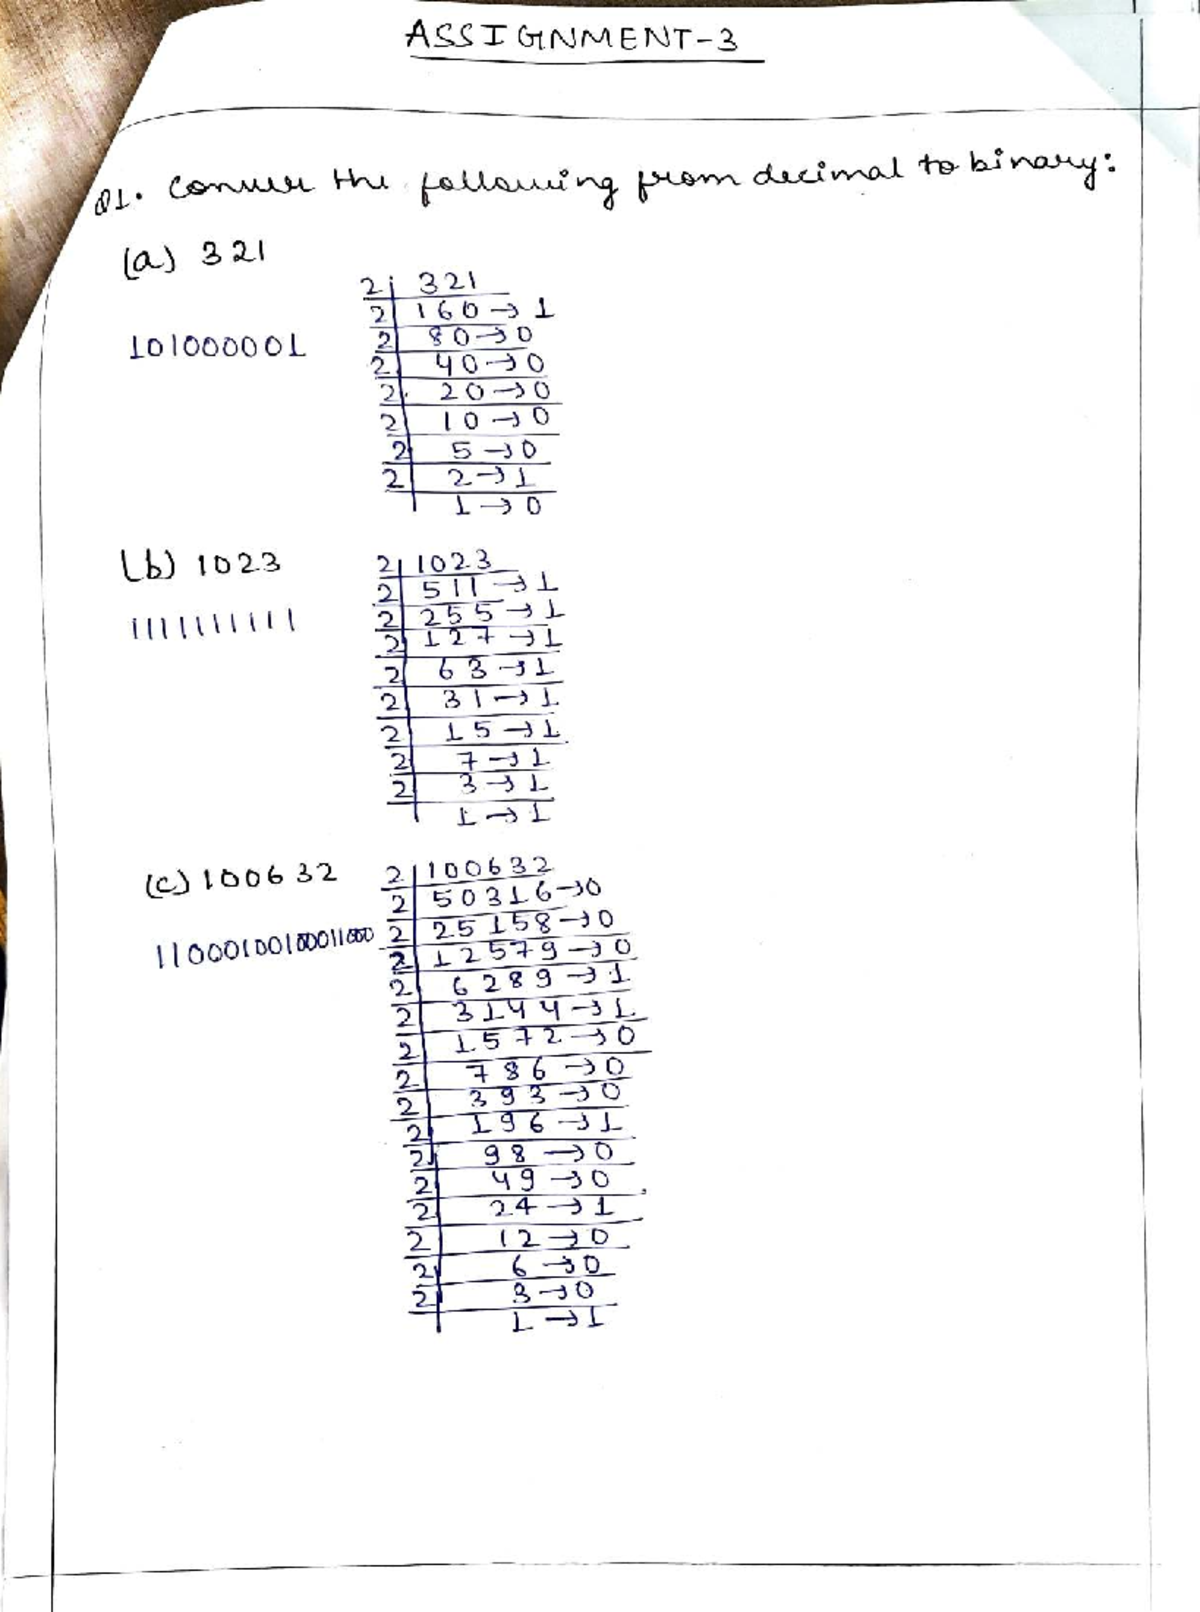 ASSIGNMENT-3
Q1. Conver the following from decimal to binary:
(a) 321
2 321
2 160→1
101000001
2 80→0
2 40→0
2 20→0
2 10→0
2 5→0
2 2→1
1→0
(b) 1023
2 1023
2 511→1
1111111111
2 255→1
2 127→1
2 63→1
2 31→1
2 15→1
2 7→1
2 3→1
1→1
(c) 100632
2 100632
2 50316→0
11000100100011000
2 25158→0
2 12579→0
2 6289→1
2 3144→1
2 1572→0
2 786→0
2 393→0
2 196→1
2 98→0
2 49→0
2 24→1
2 12→0
2 6→0
2 3→0
1→1